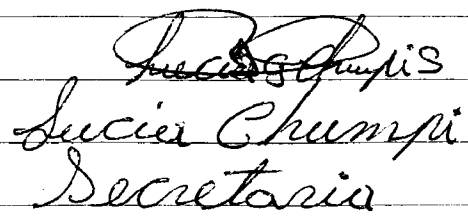 Lucia Chumpi
Secretaria